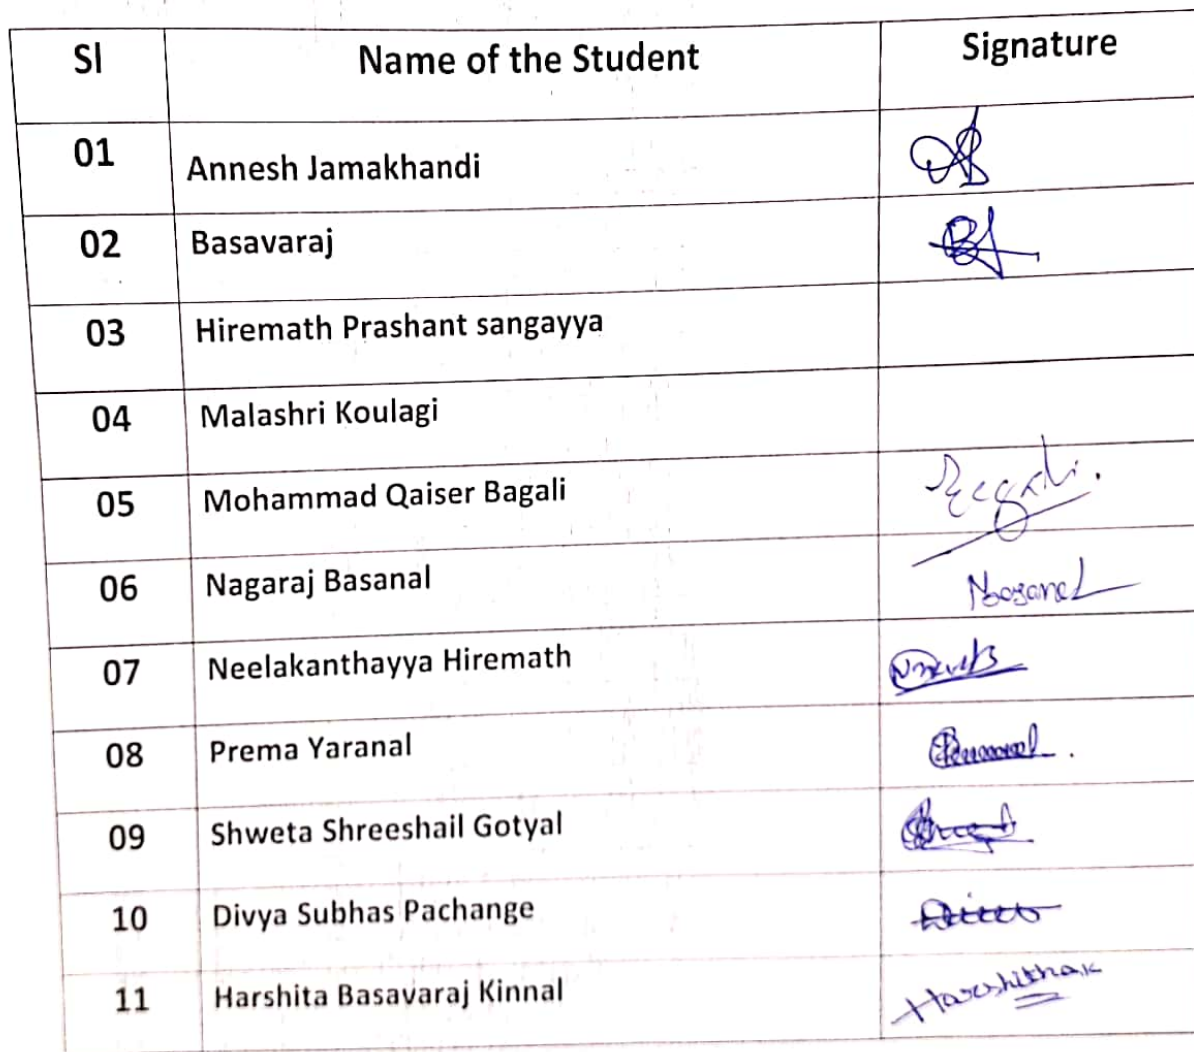 Sl Name of the Student Signature
01 Annesh Jamakhandi
02 Basavaraj
03 Hiremath Prashant sangayya
04 Malashri Koulagi
05 Mohammad Qaiser Bagali Bagali.
06 Nagaraj Basanal NBasanal
07 Neelakanthayya Hiremath
08 Prema Yaranal
09 Shweta Shreeshail Gotyal
10 Divya Subhas Pachange
11 Harshita Basavaraj Kinnal Harshithak